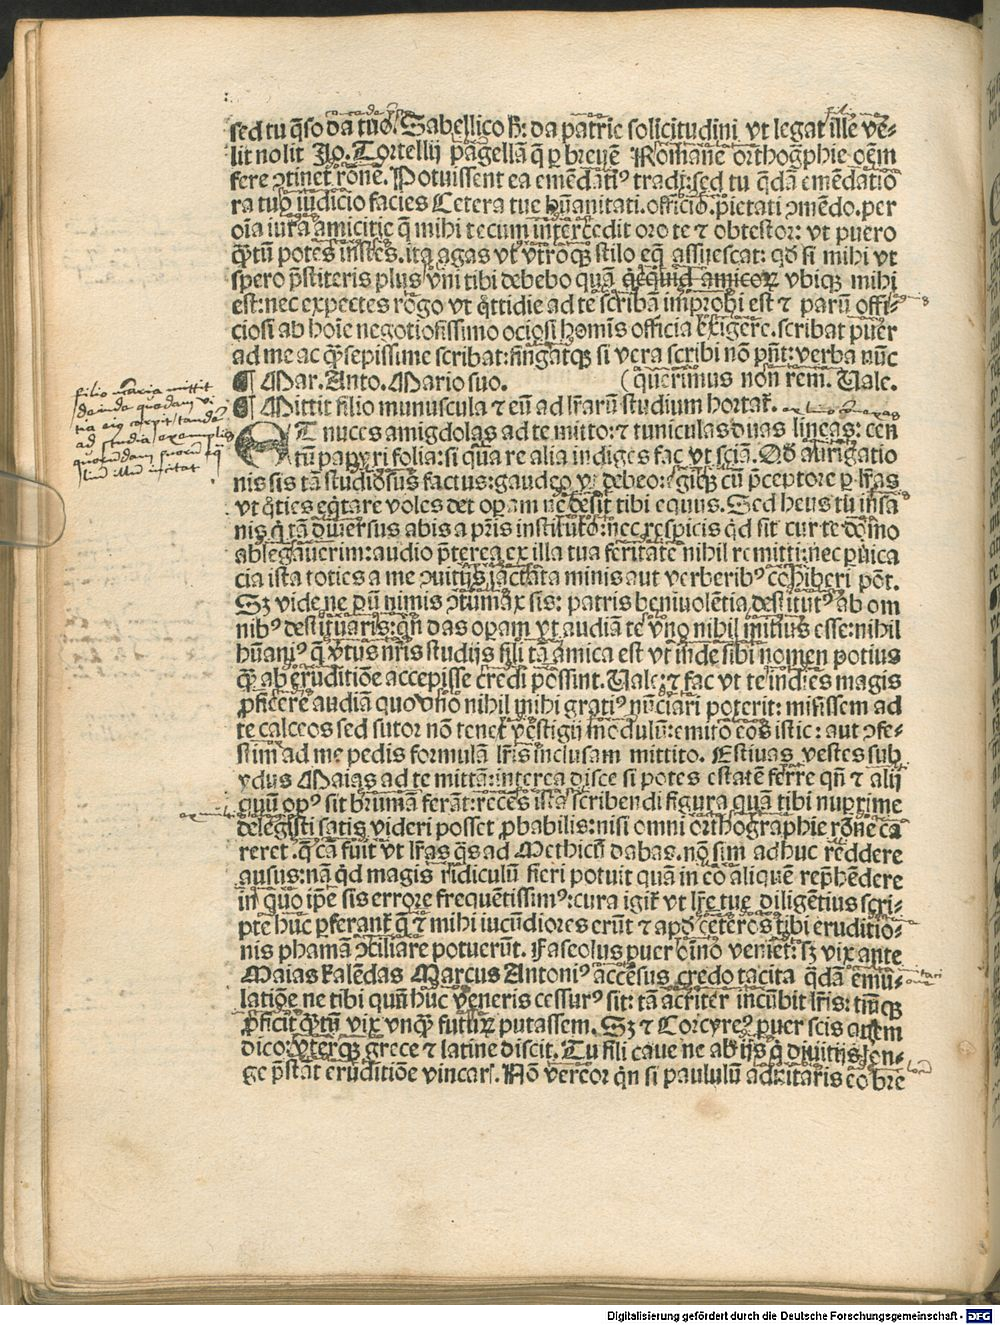 sed tu q̄so da tuo. Sabellico ꝶ: da patrie solicitudini vt legat ille ve-
lit nolit Jo. Tortellij pagellā q̄ ꝑ breuē Romane orthogphie oēm
fere ↄtinet rōnē. Potuissent ea emēdatiꝰ tradi: sed tu q̄dā emēdatio
ra tuo iudicio facies Cetera tue hūanitati. officio. pietati ↄmēdo. per
oīa iura amicitie q̄ mihi tecum intercedit oro te ⁊ obtestor: vt puero
q̄tū potes instes. ita agas vt vtroq; stilo eq̄ assuescat: qđ si mihi vt
spero p̄stiteris plus vni tibi debebo quā amicoꝝ vbiq; mihi
est: nec expectes rogo vt q̄ttidie ad te scribā improbi est ⁊ parū offi-
ciosi ab hoīe negotiosissimo ociosi homīs officia exigere. scribat puer
ad me ac q̄ sepissime scribat: fingatq; si vera scribi nō pn̄t: verba nūc
¶ Mar. Anto. Mario suo. (querimus non rem. Vale.
¶ Mittit filio munuscula ⁊ eū ad lr̄arū studium hortat.
ET nuces amigdolas ad te mitto: ⁊ tuniculas duas lineas: cen
tū papyri folia: si qua re alia indiges fac vt sciā. Qđ aurigatio
nis sis tā studiosus factus: gaudeo debeo: cū p̄ceptore ꝑ lr̄as
vt q̄ties eq̄tare voles det oꝑam ne desit tibi equus. Sed heus tu insa
nis q̄ tā diuersus abis a p̄ris instituto: nec respicis qđ sit cur te domo
ablegauerim: audio p̄terea ex illa tua feritate nihil remitti: nec ꝑuica
cia ista toties a me ↄuitijs iactata minis aut verberibꝰ cohiberi pōt.
Sꝫ vide ne dū nimis ↄtumax sis: patris beniuolētia destitutꝰ ab om
nibꝰ destituaris: qn̄ das oꝑam vt audiā te vno nihil mitius esse: nihil
hūaniꝰ q̄ vtus nr̄is studijs fili tā amica est vt inde sibi nomen potius
q̄ ab eruditiōe accepisse credi possint. Vale: ⁊ fac vt te indies magis
ꝓficere audiā quo vno nihil mihi gratiꝰ nūciari poterit: misissem ad
te calceos sed sutor nō tenet vestigij modulū: emito eos istic: aut ↄfe-
stim ad me pedis formulā lr̄is inclusam mittito. Estiuas vestes sub
ydus Maias ad te mittā: interea disce si potes estatē ferre qn̄ ⁊ alij
quū opꝰ sit brumā ferāt: recēs ista scribendi figura quā tibi nuꝑrime
delegisti satis videri posset ꝓbabilis: nisi omni orthographie rōne ca
reret. q̄ cā fuit vt lr̄as q̄s ad Methicū dabas. nō sim adhuc reddere
ausus: nā qđ magis ridiculū fieri potuit quā in eo aliquē rep̄hēdere
in quo ip̄e sis errore frequētissimꝰ: cura igit vt lr̄e tue diligētius scri-
pte huc ꝑferant q̄ ⁊ mihi iucūdiores erūt ⁊ apđ ceteros tibi eruditio-
nis phamā ↄciliare potuerūt. Faseolus puer oīno veniet: sꝫ vix ante
Maias kalēdas Marcus Antoniꝰ accēsus credo tacita q̄dā emu-
latiōe ne tibi quū huc veneris cessurꝰ sit: tā acriter incūbit lr̄is: tm̄q;
ꝓficit q̄tū vix vnq̄ futuꝝ putassem. Sꝫ ⁊ Corcyreꝰ puer scis quem
dico: vterq; grece ⁊ latine discit. Tu fili caue ne ab ijs q̄ diuitijs lon-
ge p̄stat eruditiōe vincar. Nō vereor qn̄ si paululū adnitaris eo bre
filio varia mittit
deinde quedam vi
tia eius carpit / tandē
ad studia / exemplis
quorundam suorū eq
liū illū incitat
Digitalisierung gefördert durch die Deutsche Forschungsgemeinschaft - DFG